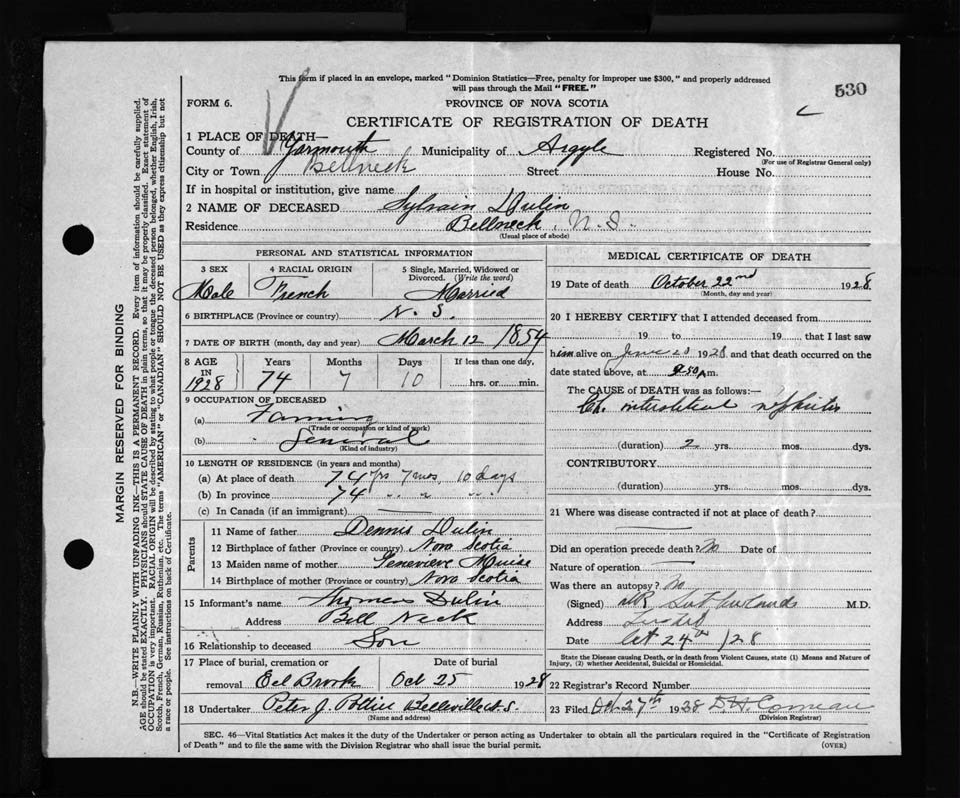 This form if placed in an envelope, marked "Dominion Statistics—Free, penalty for improper use $300," and properly addressed
will pass through the Mail "FREE."
530
FORM 6.
PROVINCE OF NOVA SCOTIA
CERTIFICATE OF REGISTRATION OF DEATH
1 PLACE OF DEATH—
County of Yarmouth Municipality of Argyle Registered No.
(For use of Registrar General only)
City or Town Bellneck Street House No.
If in hospital or institution, give name
2 NAME OF DECEASED Sylvain Dulin
Residence Bellneck, N.S.
(Usual place of abode)
PERSONAL AND STATISTICAL INFORMATION
3 SEX 4 RACIAL ORIGIN 5 Single, Married, Widowed or Divorced. (Write the word)
Male French Married
6 BIRTHPLACE (Province or country) N. S.
7 DATE OF BIRTH (month, day and year) March 12 1854
8 AGE IN 1928 Years Months Days If less than one day,
74 7 10 hrs. or min.
9 OCCUPATION OF DECEASED
(a) Farming
(Trade or occupation or kind of work)
(b) General
(Kind of industry)
10 LENGTH OF RESIDENCE (in years and months)
(a) At place of death 74 yrs 7 mos, 10 days
(b) In province 74 " " " "
(c) In Canada (if an immigrant)
Parents
11 Name of father Dennis Dulin
12 Birthplace of father (Province or country) Nova Scotia
13 Maiden name of mother Genevieve Muise
14 Birthplace of mother (Province or country) Nova Scotia
15 Informant's name Thomas Dulin
Address Bell Neck
16 Relationship to deceased Son
17 Place of burial, cremation or removal Eel Brook Date of burial Oct 25 1928
18 Undertaker Peter J. Pottier Belleville N.S.
(Name and address)
MEDICAL CERTIFICATE OF DEATH
19 Date of death October 22nd 1928
(Month, day and year)
20 I HEREBY CERTIFY that I attended deceased from
19 to 19, that I last saw
him alive on June 20 1928 and that death occurred on
date stated above, at 9.50 Pm.
The CAUSE of DEATH was as follows:—
Ch. interstitial nephritis
(duration) 2 yrs. mos. dys.
CONTRIBUTORY
(duration) yrs. mos. dys.
21 Where was disease contracted if not at place of death?
Did an operation precede death? No Date of
Nature of operation
Was there an autopsy? No
(Signed) M.D.
Address
Date Oct 24th /28
State the Disease causing Death, or in death from Violent Causes, state (1) Means and Nature of
Injury, (2) whether Accidental, Suicidal or Homicidal.
22 Registrar's Record Number
23 Filed Oct. 27th 1928 D. H. Comeau
(Division Registrar)
SEC. 46—Vital Statistics Act makes it the duty of the Undertaker or person acting as Undertaker to obtain all the particulars required in the "Certificate of Registration
of Death" and to file the same with the Division Registrar who shall issue the burial permit.
(OVER)
MARGIN RESERVED FOR BINDING
N.B.—WRITE PLAINLY WITH UNFADING INK—THIS IS A PERMANENT RECORD. Every item of information should be carefully supplied.
AGE should be stated EXACTLY. PHYSICIANS should STATE CAUSE OF DEATH in plain terms, so that it may be properly classified. Exact statement of
OCCUPATION is very important. RACIAL ORIGIN will be described by stating to what people or tongue the deceased person belonged, whether English, Irish,
Scotch, French, German, Russian, Ruthenian, etc. The terms "AMERICAN" or "CANADIAN" SHOULD NOT BE USED as they express citizenship but not
a race or people. See instructions on back of Certificate.